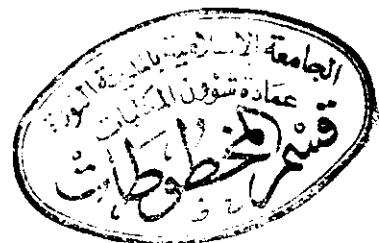 الجامعة الاسلامية بالمدينة المنورة
عمادة شؤون المكتبات
قسم المخطوطات